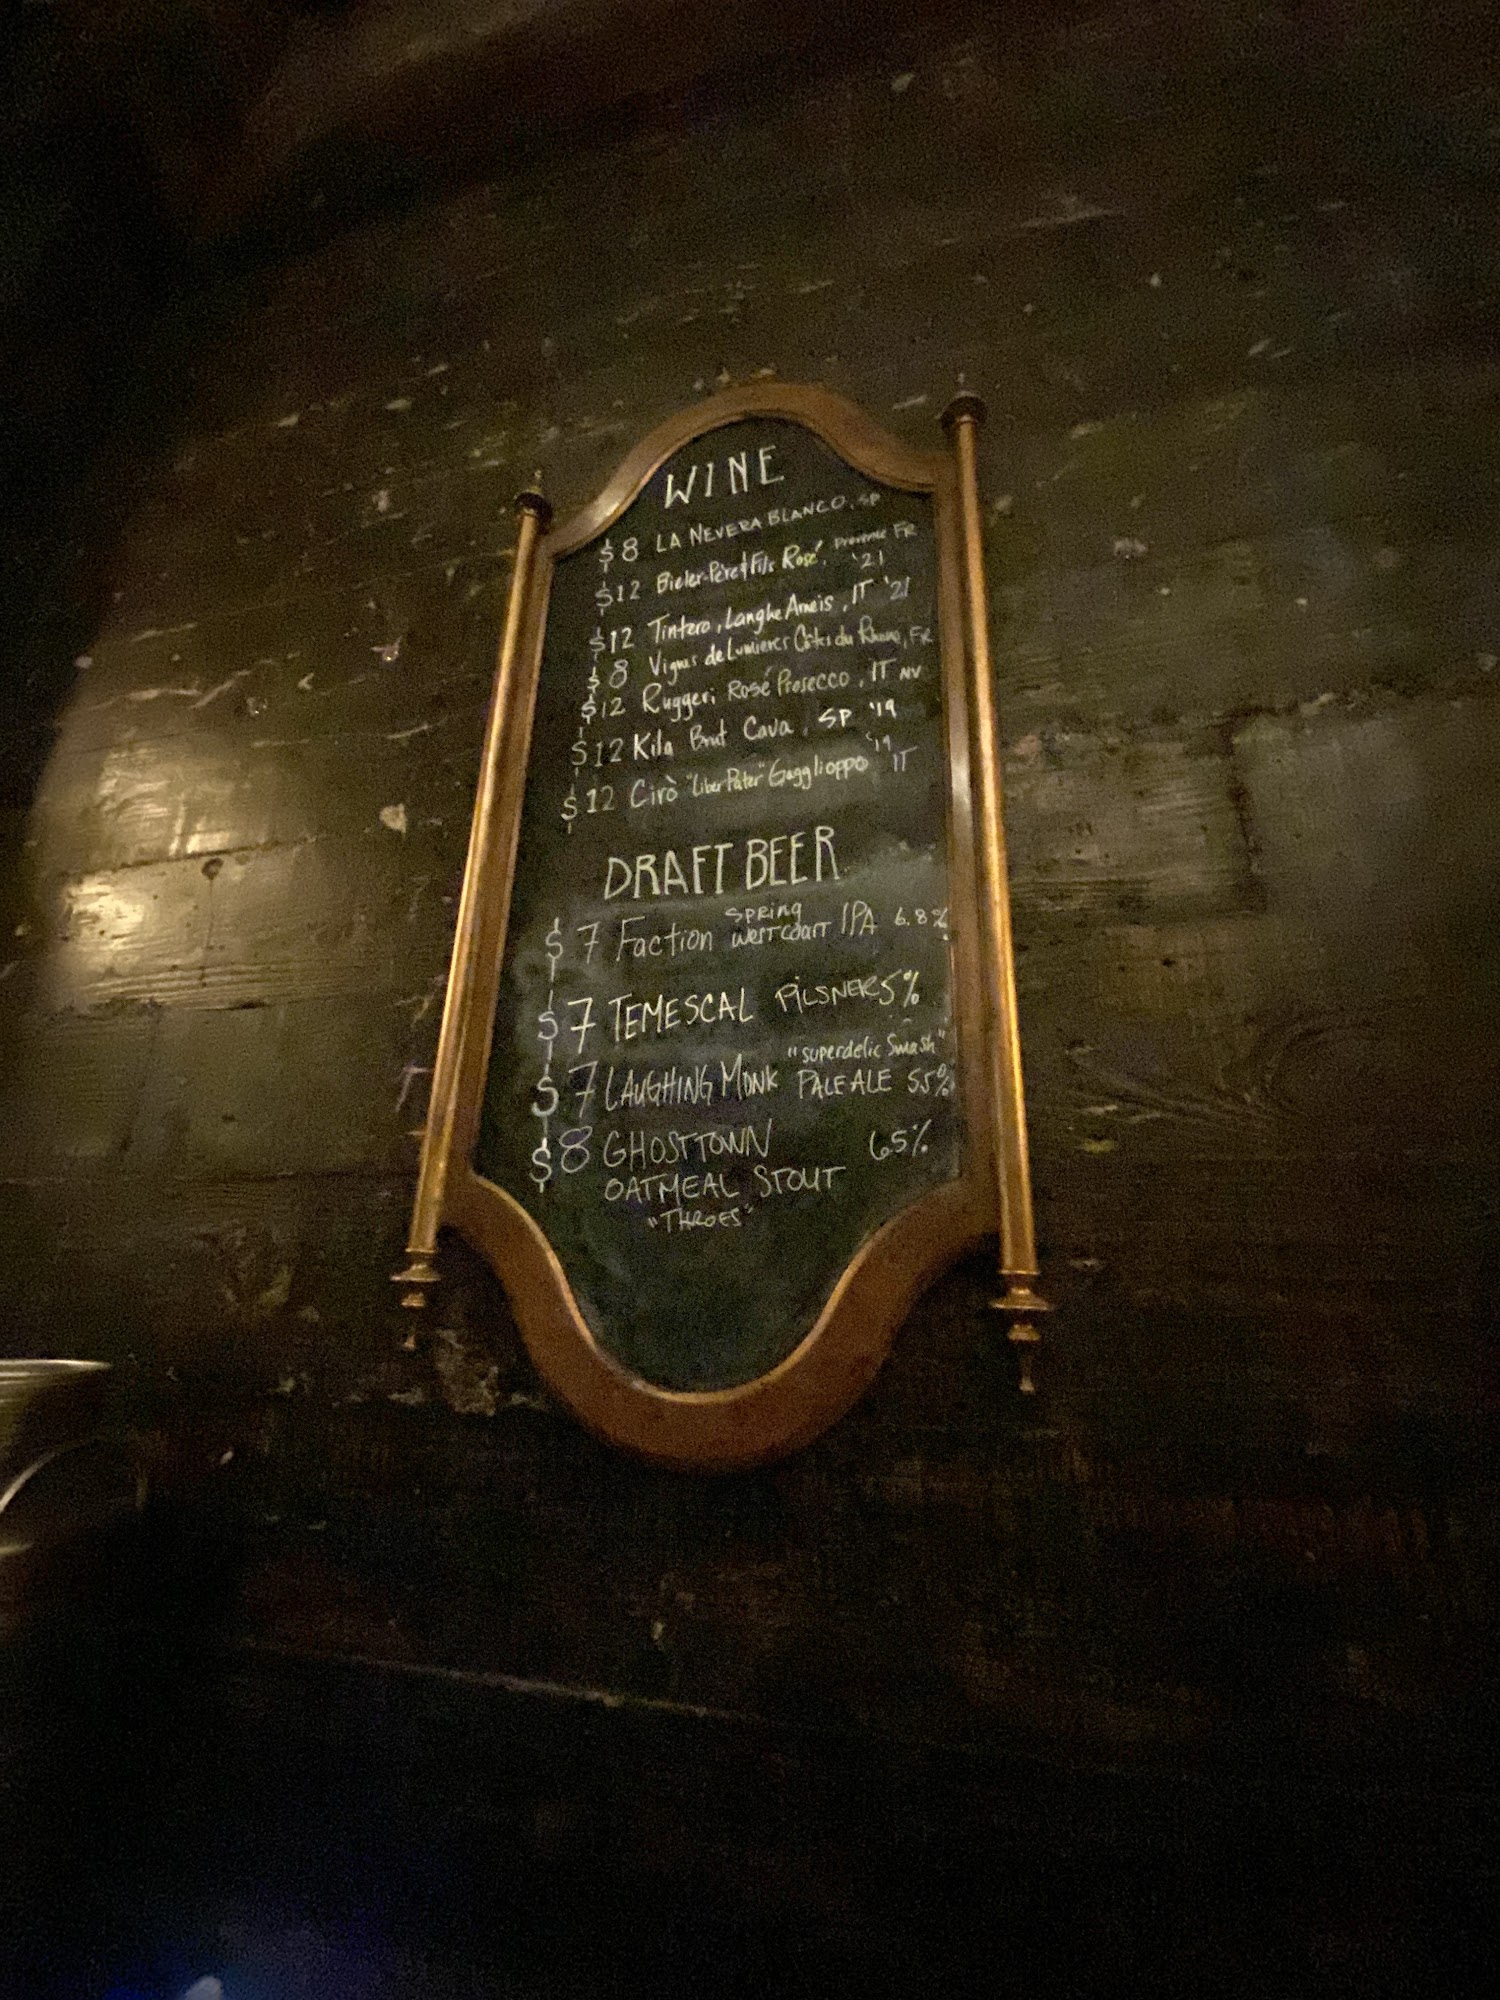 WINE
$8 LA NEVERA BLANCO, SP
$12 Bieler Père & Fils Rosé, Provence FR '21
$12 Tintero, Langhe Arneis, IT '21
$8 Vignes de Lumieres Côtes du Rhone, FR
$12 Ruggeri Rosé Prosecco, IT NV
$12 Kila Brut Cava, SP '19
$12 Cirò "Liber Pater" Gaglioppo '19 IT
DRAFT BEER
$7 Faction SPRING WEST COAST IPA 6.8%
$7 TEMESCAL PILSNER 5%
$7 LAUGHING MONK "Superdelic Smash" PALE ALE 5.5%
$8 GHOST TOWN 6.5%
OATMEAL STOUT
"THROES"